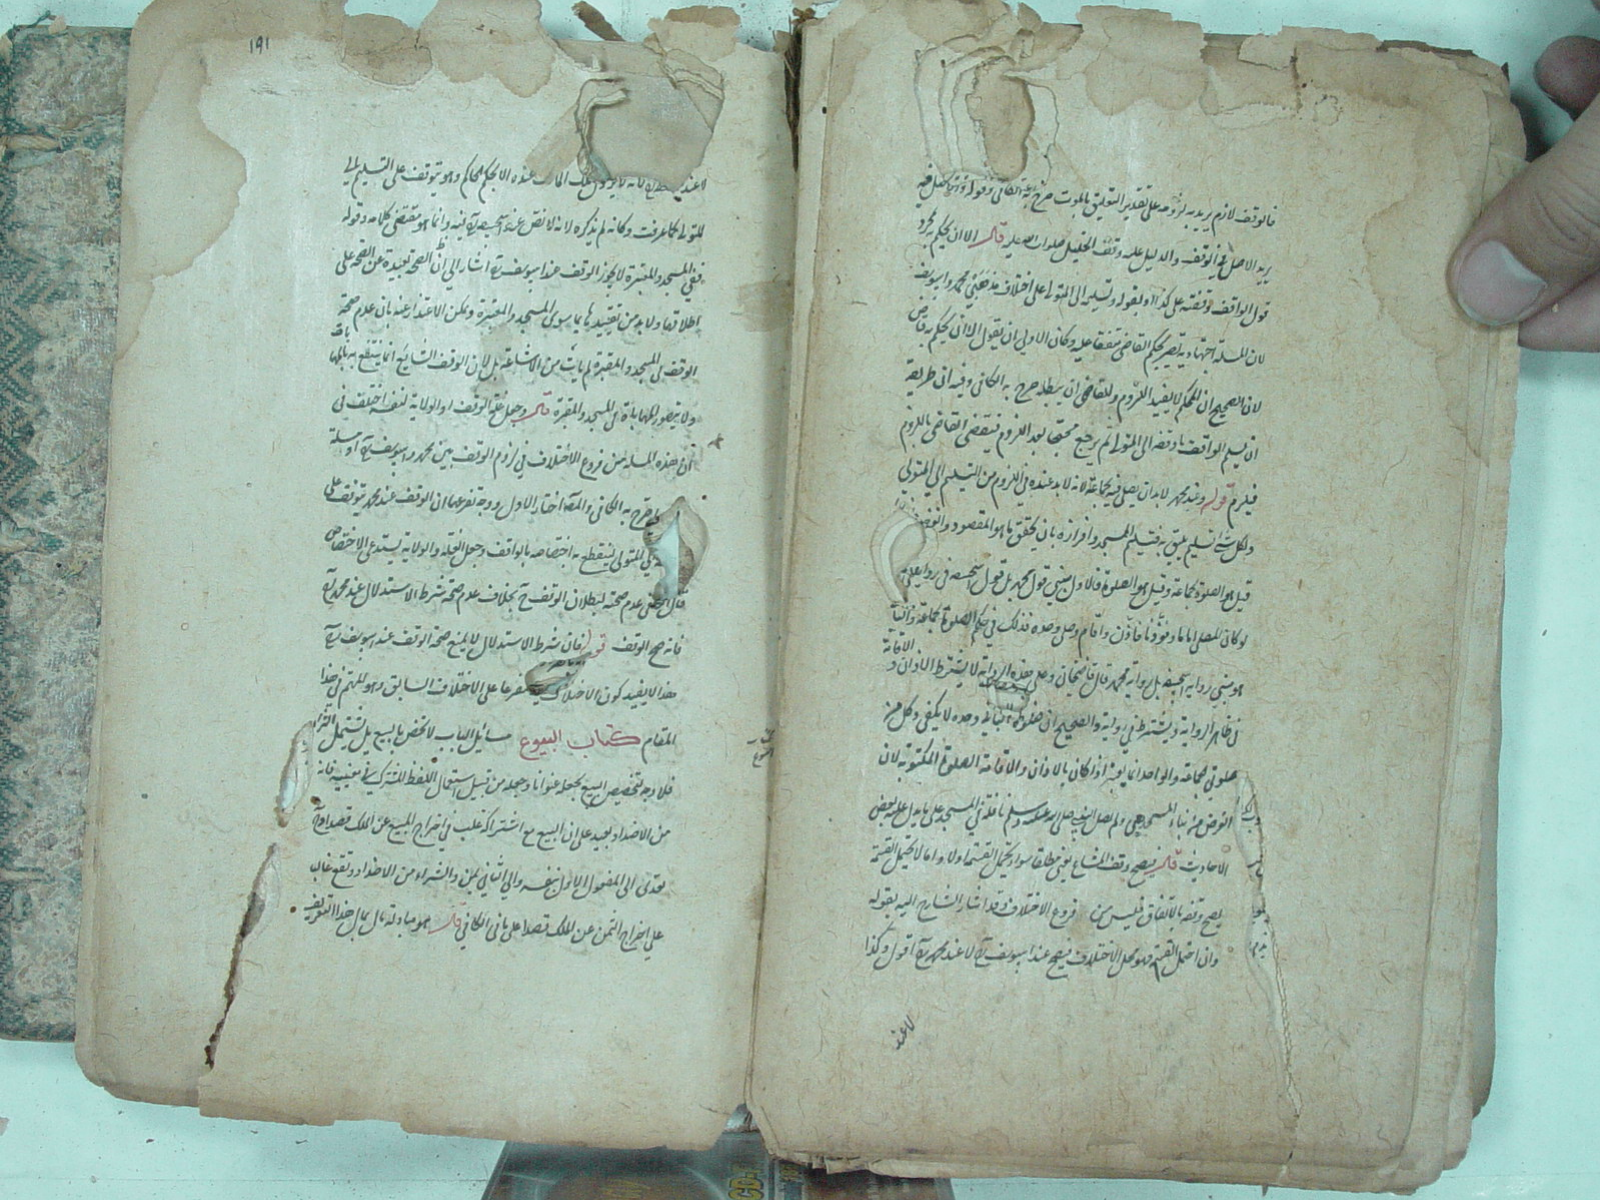 فالوقف لازم يريد به لزومه على تقدير التعليق بالموت صرح به في الكافي وقوله
يريد الاصل في الوقف والدليل عليه وقف الخليل صلوات الله عليه قال الا ان يحكم به
قول الواقف وقفته على كذا او بقوله وتسليمه الى المتولي على اختلاف مذهبي محمد وابي يوسف
لان المسئلة اجتهادية يصير بحكم القاضي متفقا عليه وكان الاولى ان يقول الا ان يحكم به قاض
لان الصحيح ان المحكم لا يفيد اللزوم وللقاضي ان يبطله صرح به الكافي وفيه ان طريقه
ان يسلم الواقف ما وقفه الى المتولي ثم يرجع محتجا بعد اللزوم فيقضي القاضي باللزوم
فيلزم قوله وعند محمد لا بد ان يصلي فيه بجماعة لانه لا بد عنده في اللزوم من التسليم الى المتولي
ولكل شيء تسليم يليق به فتسليم المسجد وافرازه بان يحقق ما هو المقصود
قيل هو الصلوة بجماعة وقيل هو الصلوة فالاول مبني قول محمد بل قول ابي حنيفة في رواية
لو كان للمصلي اماما ومؤذنا فاذن واقام وصلى وحده فذلك في حكم الصلوة بجماعة والثاني
هو مبني رواية ابي حنيفة بل رواية محمد قال قاضيخان وعلى هذه الرواية لا يشترط الاذان و الاقامة
في ظاهر الرواية ويشترط في رواية والصحيح ان صلوة الباني وحده لا يكفي وكل من
صلوتي الجماعة والواحد انما يعتبر اذا كان بالاذان والاقامة الصلوة المكتوبة لان
الغرض من بناء المسجد هي ولم يصل النبي صلى الله عليه وسلم نافلة في المسجد على ما يدل عليه بعض
الاحاديث قال فيصح وقف المشاع يعني مطلقا سواء يحتمل القسمة اولا واما لا يحتمل القسمة
يصح وقفه بالاتفاق فليس من فروع الاختلاف وقد اشار الشارح اليه بقوله
وان احتمل القسمة فهو محل الاختلاف فيصح عند ابي يوسف لا عند محمد اقول وكذا
لا عند
١٩١
لا عند لانه لا يزول ملك المالك عنده الا بحكم الحاكم وهو يتوقف على التسليم الى
المتولي كما عرفت وكانه لم يذكره لانه لا نص عن ابي حنيفة فيه وانما هو مقتضى كلامه وقوله
ففي المسجد والمقبرة لا يجوز الوقف عند ابي يوسف اشار الى ان الصحة بعيدة عن الصحة على
اطلاقها ولا بد من تقييدها بما سوى المسجد والمقبرة ويمكن الاعتذار عنه بان عدم صحة
الوقف في المسجد والمقبرة لم يأت من الاشاعة بل لان الوقف الشايع انما ينتفع به بالمهاياة
ولا يتصور المهاياة في المسجد والمقبرة قال وجعل غلة الوقف او الولاية لنفسه اختلف في
ان هذه المسئلة من فروع الاختلاف في لزوم الوقف بين محمد وابي يوسف او مسئلة
صرح به الكافي والمص اختار الاول ووجه تفرعها ان الوقف عند محمد يتوقف على
الى المتولي لينقطع به اختصاصه بالواقف وجعل الغلة والولاية يستدعي الاختصاص
عدم صحته لبطلان الوقف بخلاف عدم صحة شرط الاستبدال عند محمد
فانه صح الوقف قوله فان شرط الاستبدال لا يمنع صحة الوقف عند ابي يوسف
هذا لا يفيد كون الاختلاف متفرعا على الاختلاف السابق وهو المهم في هذا
المقام كتاب البيوع مسائل الباب لا تختص بالبيع بل تشتمل الشراء
فلا وجه لتخصيص البيع بجعله عنوانا وجعله من قبيل استعمال اللفظ المشترك في معنييه فانه
من الاضداد بعيد على ان البيع مع اشتراكه غلب في اخراج المبيع عن الملك قصدا
يتعدى الى المفعول الاول بنفسه والى الثاني بمن والشراء من الاضداد ويقع غالبا
على اخراج الثمن عن الملك قصدا على ما في الكافي قال هو مبادلة مال بمال هذا التعريف